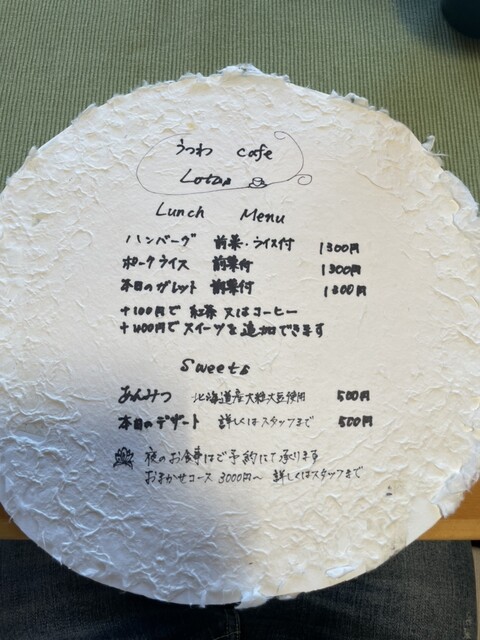 うつわ cafe
Lotus
Lunch Menu
ハンバーグ 前菜・ライス付 1300円
ポークライス 前菜付 1300円
本日のガレット 前菜付 1300円
+100円で 紅茶 又はコーヒー
+400円で スイーツを追加できます
Sweets
あんみつ 北海道産大粒大豆使用 500円
本日のデザート 詳しくはスタッフまで 500円
夜のお食事はご予約にて承ります
おまかせコース 3000円〜 詳しくはスタッフまで